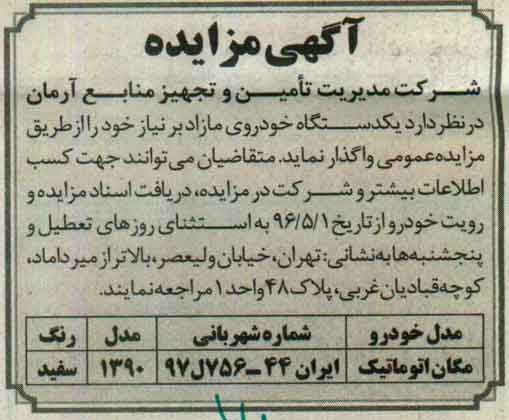 آگهی مزایده
شرکت مدیریت تأمین و تجهیز منابع آرمان
در نظر دارد یکدستگاه خودروی مازاد بر نیاز خود را از طریق
مزایده عمومی واگذار نماید. متقاضیان می‌توانند جهت کسب
اطلاعات بیشتر و شرکت در مزایده، دریافت اسناد مزایده و
رویت خودرو از تاریخ ۹۶/۵/۱ به استثنای روزهای تعطیل و
پنجشنبه‌ها به نشانی: تهران، خیابان ولیعصر، بالاتر از میرداماد،
کوچه قبادیان غربی، پلاک ۴۸ واحد ۱ مراجعه نمایند.
مدل خودرو شماره شهربانی مدل رنگ
مگان اتوماتیک ایران ۴۴ – ۷۵۶ل۹۷ ۱۳۹۰ سفید